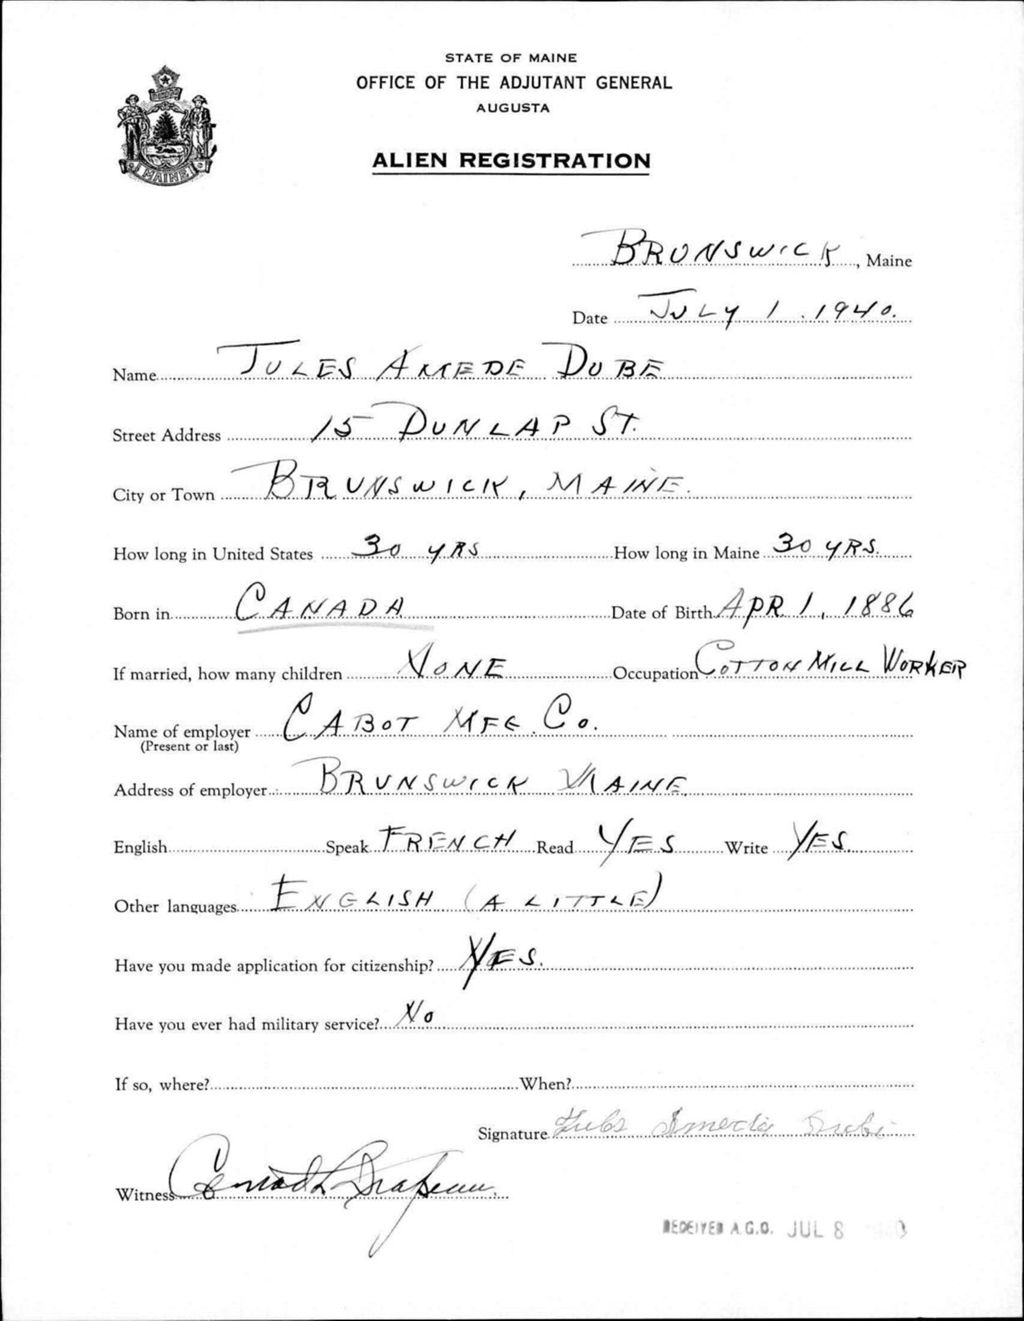 STATE OF MAINE
OFFICE OF THE ADJUTANT GENERAL
AUGUSTA
ALIEN REGISTRATION
MAINE
BRUNSWICK, Maine
Date JULY 1, 1940.
Name JULES AMEDE DUBE
Street Address 15 DUNLAP ST.
City or Town BRUNSWICK, MAINE.
How long in United States 30 YRS How long in Maine 30 YRS.
Born in CANADA Date of Birth APR. 1, 1886
If married, how many children NONE Occupation COTTON MILL WORKER
Name of employer CABOT MFG. CO.
(Present or last)
Address of employer BRUNSWICK MAINE.
English Speak FRENCH Read YES Write YES.
Other languages ENGLISH (A LITTLE)
Have you made application for citizenship? YES.
Have you ever had military service? NO
If so, where? When?
Signature Jules Amedie Dube
Witness Conrad L Drapeau.
RECEIVED A.G.O. JUL 8 1940